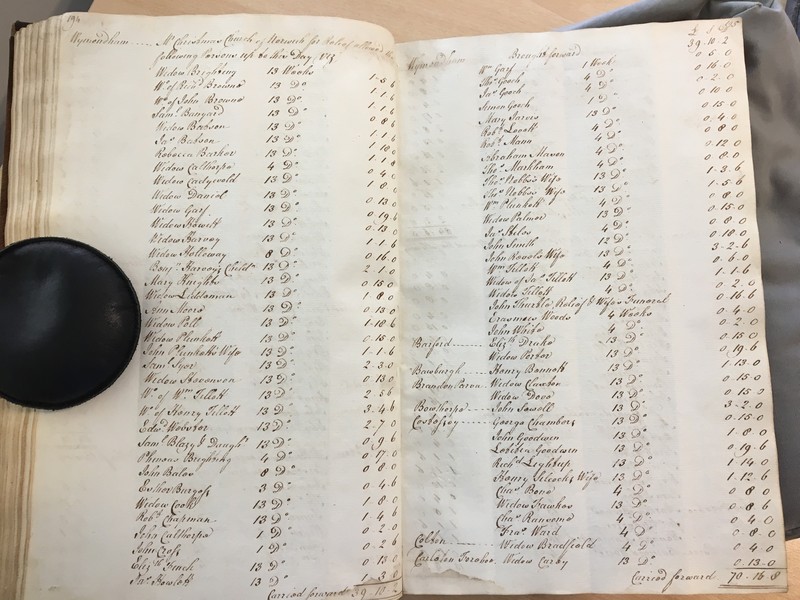 194
Wymondham .... Mr Chrestmas Church of Norwich for Releif allow'd the
following Persons up to this Day 1715
Widow Brighting 13 Weeks 1-5-6
Wo of Richd Browne 13 Do 1-1-6
Wo of John Browne 13 Do 1-1-6
Saml Bunyard 13 Do
Widow Babson 13 Do
Jas Babson 13 Do
Rebecca Barker 13 Do
Widow Calthorpe 4 Do
Widow 13 Do
Widow Daniel 13 Do
Widow Gary 13 Do
Widow Howitt 13 Do
Widow Harvey 13 Do
Widow Holloway 8 Do
Benjn Harvey's Childn 13 Do 2-1-0
Mary Knights 13 Do 0-15-0
Widow Liddaman 13 Do 1-8-0
Ann Moore 13 Do 0-13-0
Widow Poll 13 Do 1-18-6
Widow Plunkett 13 Do 0-15-0
John Plunketts Wife 13 Do 1-1-6
Saml Pyor 13 Do 2-3-0
Widow Stevenson 13 Do 0-13-0
Wo of Wm Tillott 13 Do 2-5-6
Wo of Henry Tillott 13 Do 3-4-6
Edwd Webster 13 Do 2-7-0
Saml Blazy's Daughr 13 Do 0-9-6
Phineas Brighting 4 Do 0-17-0
John Bales 8 Do 0-8-0
Esther Burgess 3 Do 0-4-6
Widow Cook 13 Do 1-8-0
Robt Chapman 13 Do 1-4-6
John Calthorpe 1 Do 0-2-0
John Cross 1 Do 0-2-6
Elizth French 13 Do 0-13-0
Jas Howlett 13 Do 1-3-8
Carried forward 39-10-2
£ s d
Wymondham Brought forward 39-10-2
Wm Gary 1 Week 0-5-0
Thos Gooch 4 Do 0-16-0
Jas Gooch 4 Do 0-2-0
Simon Gooch 1 Do 0-10-0
Mary Jarvis 13 Do 0-15-0
Robt Lovott 4 Do 0-4-0
Robt Mann 4 Do 0-8-0
Abraham Mason 4 Do 0-12-0
Thos Markham 4 Do 0-8-0
Thos Nobbs's Wife 13 Do 1-3-6
Thos Nobbs's Wife 13 Do 1-5-6
Wm Plunkett 4 Do 0-8-0
Widow Palmer 13 Do 0-15-0
Jas Stiles 4 Do 0-8-0
John Smith 12 Do 0-18-0
John Ravels Wife 13 Do 3-2-6
Wm Tillott 4 Do 0-6-0
Widow of Jas Tillott 13 Do 1-1-6
Widow Tillott 4 Do 0-2-0
John Thurkle Releif & Wifes Funeral 0-16-6
Erasmus Woods 4 Weeks 0-4-0
John White 4 Do 0-2-0
Barford .... Elizth Drake 13 Do 0-15-0
Widow Porter 13 Do 0-19-6
Bawburgh .... Henry Bennett 13 Do 1-13-0
Brandon Parva .. Widow Claxton 13 Do 0-15-0
Widow Dove 13 Do 0-15-0
Bowthorpe .... John Sowell 13 Do 3-2-0
Costessey .... George Chambers 13 Do 0-15-0
John Goodwin 13 Do 1-8-0
Lobitea Goodwin 13 Do 0-19-6
Richd Leghtup 13 Do 1-14-0
Henry Silcocks Wife 13 Do 1-12-6
Chas Bond 4 Do 0-8-0
Widow Fawkes 13 Do 0-8-6
Chas Ransome 4 Do 0-4-0
Fras Ward 4 Do 0-8-0
Colton .... Widow Bradfield 4 Do 0-4-0
Carleton Forehoe Widow Carby 13 Do 0-13-0
Carried forward 70-16-8